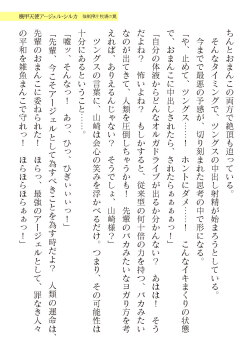 機甲天使アージェル・シルカ
ちんとおまんこの両方で絶頂も迫っている。
そんなタイミングで、ツングスの中出し射精が始まろうとしている。
今までで最悪の予感が、切り刻まれた思考の中で形になる。
「や、止めて、ツングス……！　ホントにダメ……！　こんなイキまくりの状態
で、おまんこに中出しされたら、さすがに……！」
「自分の体液からどんなオルガドライブが出るか分かんない？　あはは！　そう
だよね？　怖いよね？　もしかすると、従来型の何十倍の力を持つ、バカみたい
なのが出てきて、人類を圧倒しちゃうかも！　先輩のバカみたいなヨガり方を考
えれば、ありえるんじゃないかな？　そうでしょ、山崎様？」
ツングスの言葉に、山崎は会心の笑みを浮かべるだけ。つまり、その可能性は
十分にあるということ……。
「嘘ッ、そんなっ！　あっ、ひっ、ひぎぃぃぃっ！」
「先輩、今こそアージェルとして為すべきことを為す時だよ？　人類の運命は、
先輩のおまんこに委ねられた！　ほらっ、最強のアージェルとして、罪なき人々
の平和を雑魚まんこで守れっ！　ほらほらほらぁぁぁっ！」